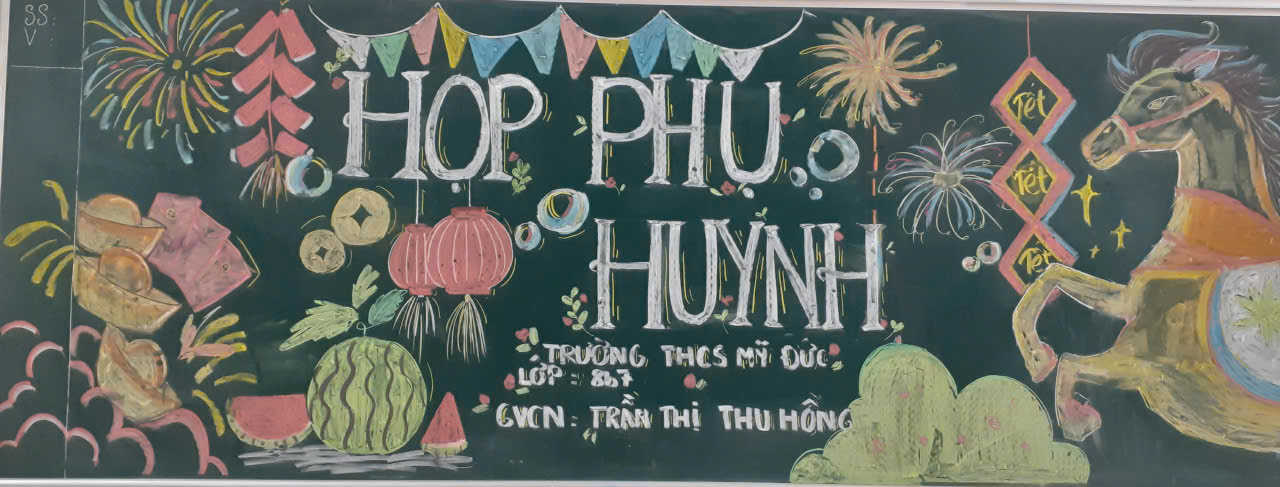 SS:
V :
HỌP PHỤ
HUYNH
Tét
Tét
Tét
TRƯỜNG THCS MỸ ĐỨC
LỚP : 8b7
GVCN : TRẦN THỊ THU HỒNG